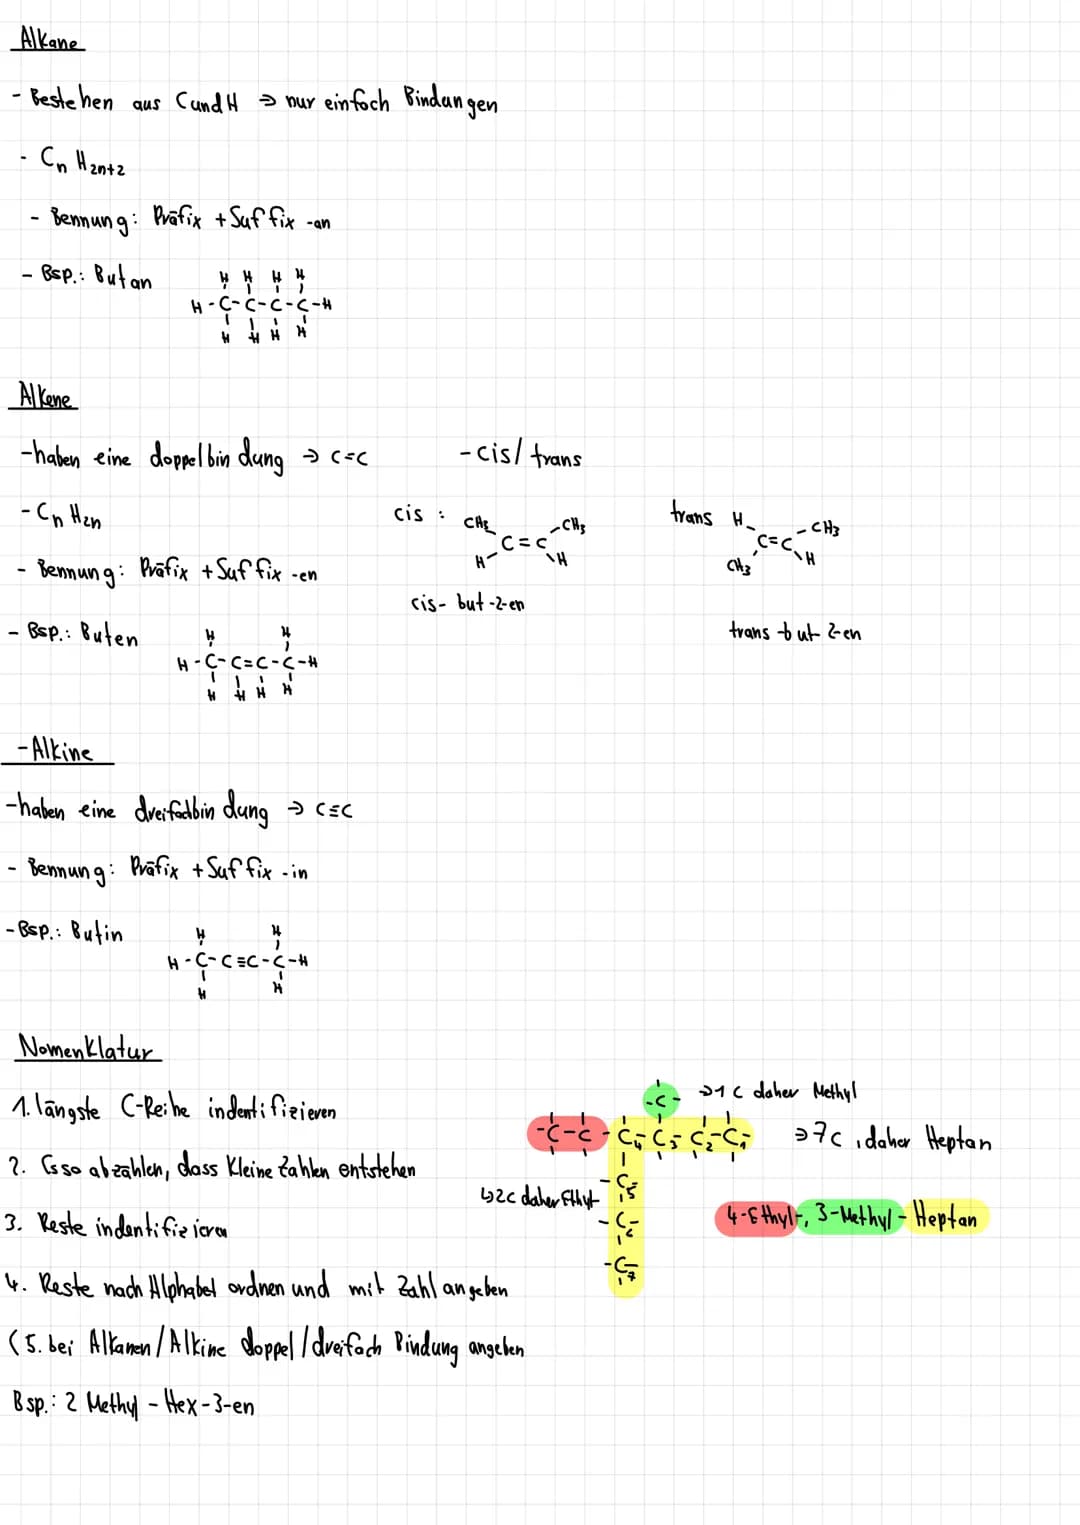 Alkane
- Bestehen aus C und H → nur einfach Bindungen
- CnH2n+2
- Bennung: Präfix + Suffix -an
- Bsp.: Butan
H H H H
H-C-C-C-C-H
H H H H
Alkene
-haben eine doppelbindung → C=C
- CnH2n
- Bennung: Präfix + Suffix -en
- Bsp.: Buten
H H
H-C-C=C-C-H
H H H H
-cis/trans
cis :
CH3 CH3
C=C
H H
cis- but-2-en
trans
H CH3
C=C
CH3 H
trans -but 2-en
-Alkine
-haben eine dreifachbindung → C≡C
- Bennung: Präfix + Suffix -in
-Bsp.: Butin
H H
H-C-C≡C-C-H
H H
Nomenklatur
1. längste C-Reihe indentifizieren
2. Es so abzählen, dass kleine Zahlen entstehen
3. Reste indentifizieren
4. Reste nach Alphabet ordnen und mit Zahl angeben
(5. bei Alkanen/Alkine doppel/dreifach Bindung angeben
Bsp.: 2 Methyl - Hex-3-en
-C- →1 C daher Methyl
-C-C-C4-C3-C2-C1- →7C, daher Heptan
↳2C daher Ethyl
-C5-
-C6-
-C7-
4-Ethyl-, 3-Methyl-Heptan